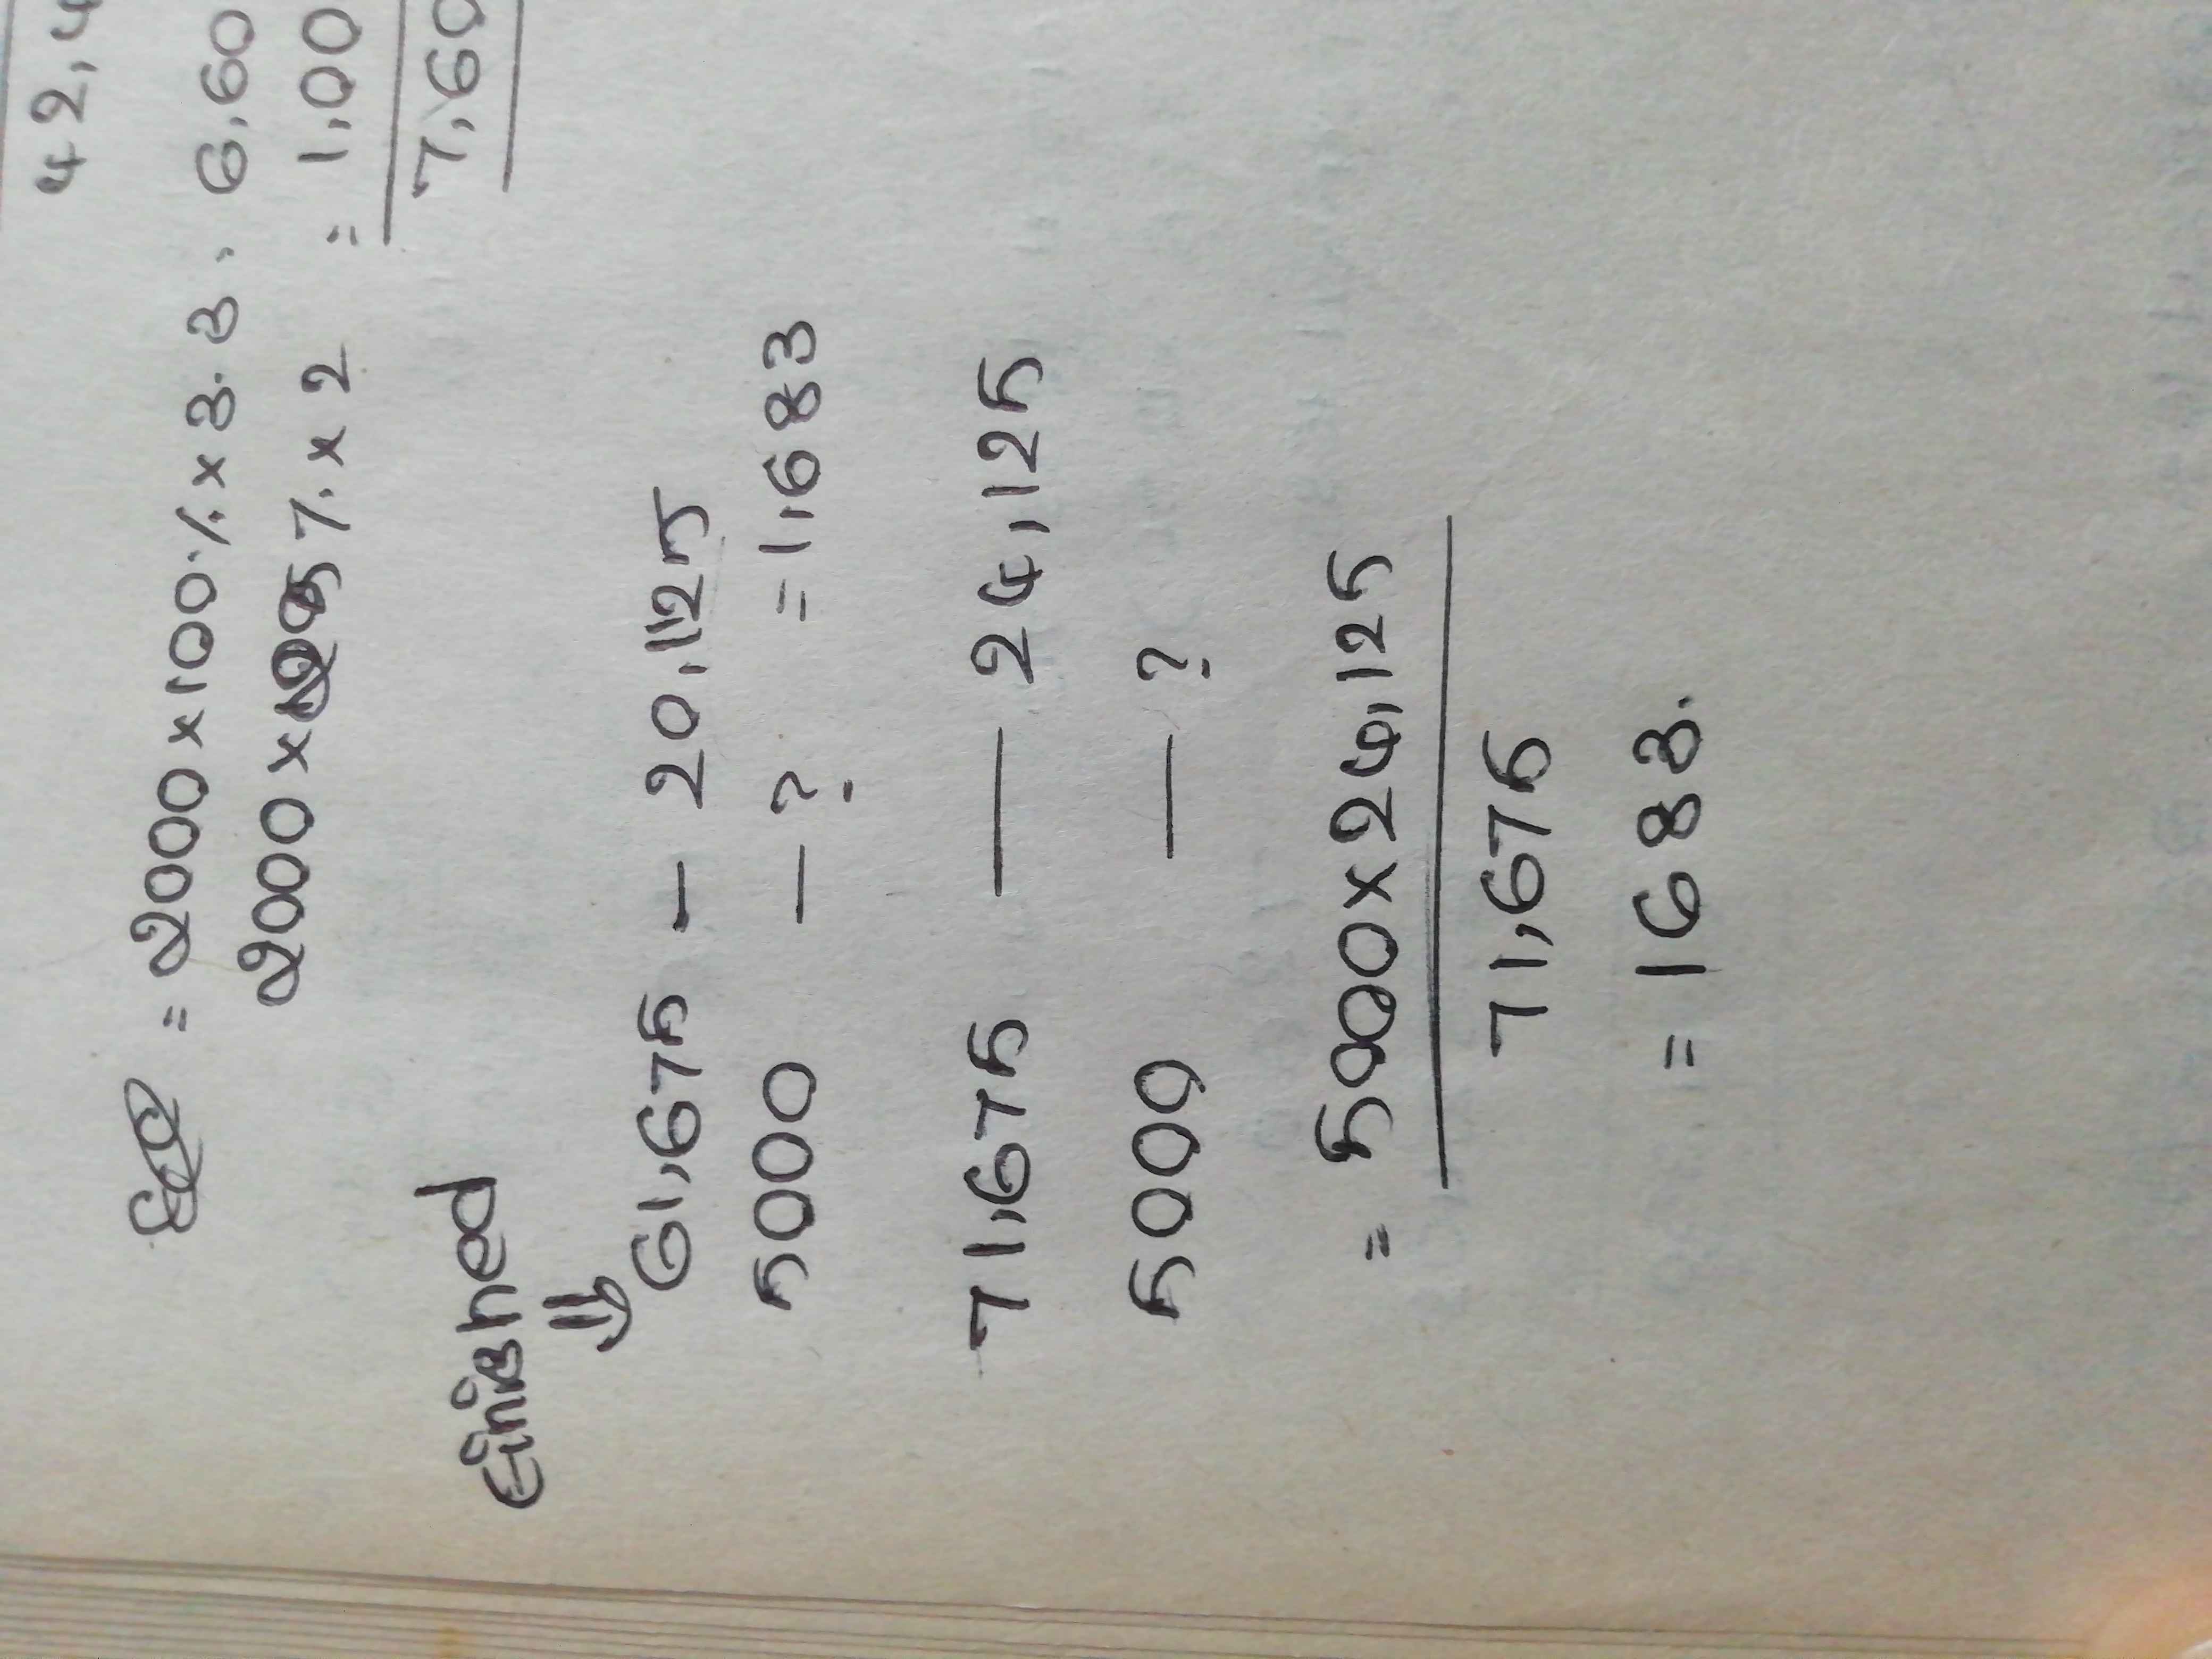 42,4
= 2000 x 100% x 3.3. 6,60
2000 x 25% x 2 = 1,00
7,60
Finished
61,675 - 20,1125
5000 - ? = 1,683
71,675 - 24,125
5000 - ?
= 5000 x 24,125
71,675
= 1683.